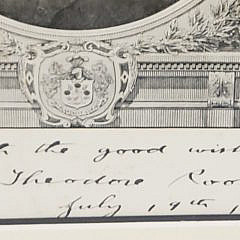 h the good wish
Theodore Roo
July 19th 1